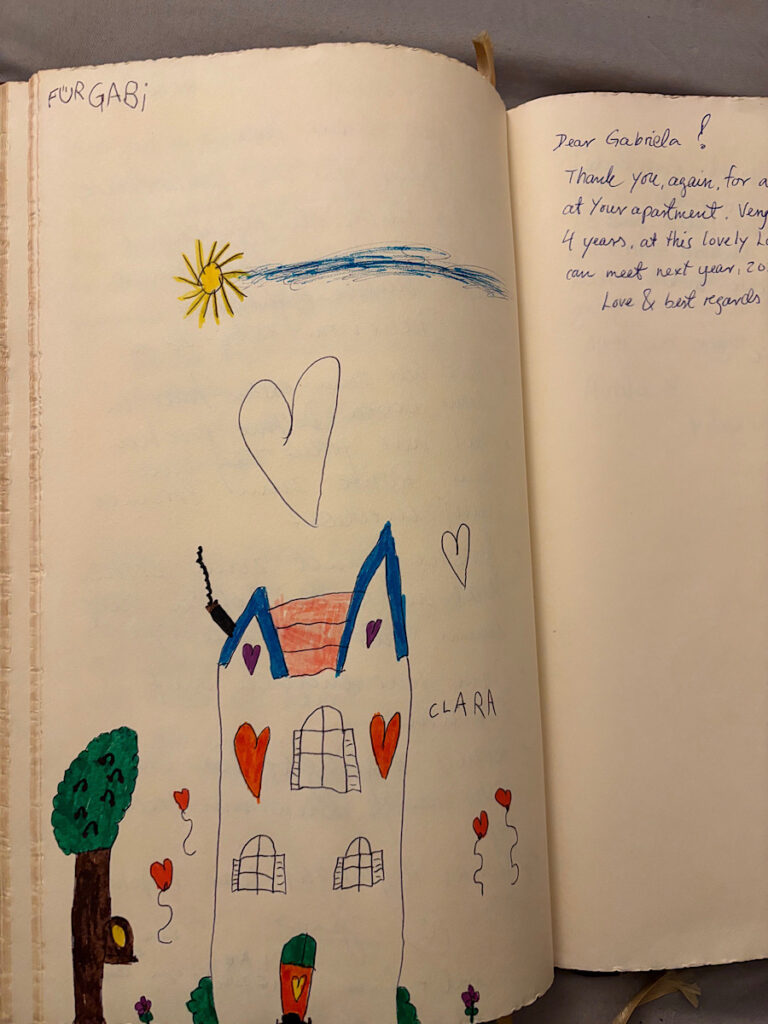 FÜR GABi
CLARA
Dear Gabriela !
Thank you, again, for a
at Your apartment. Very
4 years, at this lovely
can meet next year, 20
Love & best regards